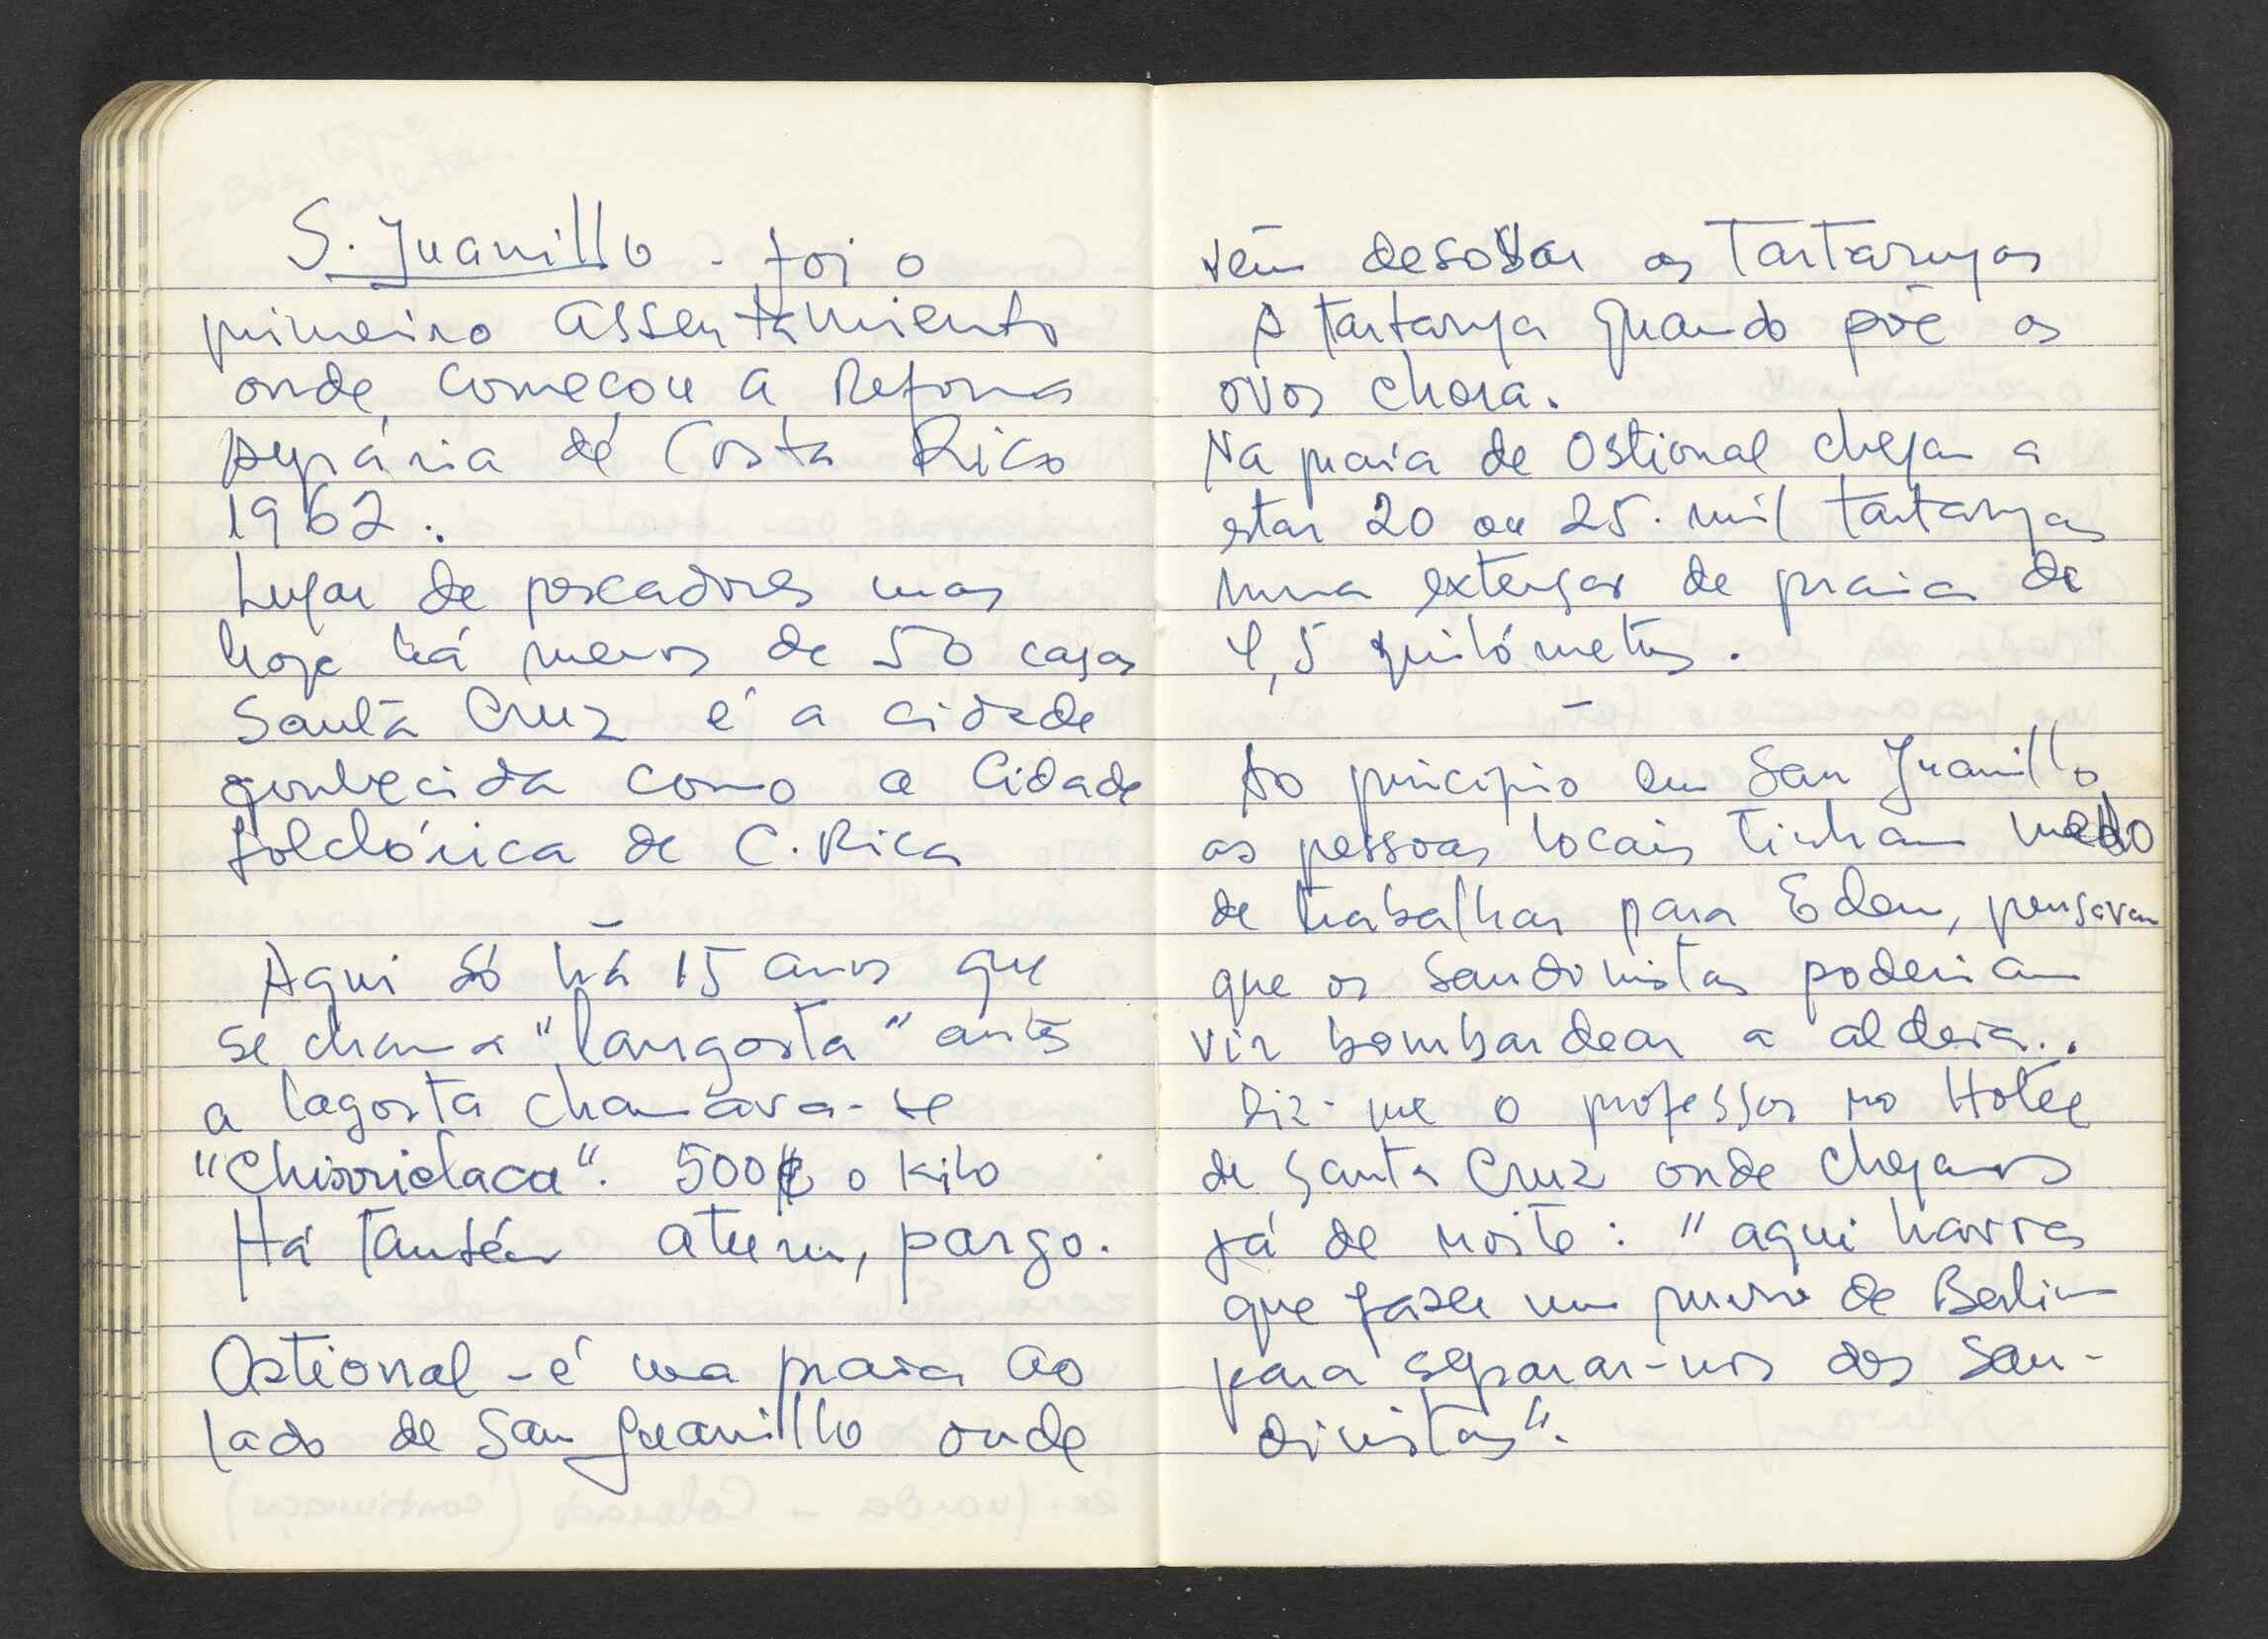 S. Juanillo - foi o
primeiro assentamiento
onde começou a Reforma
Agrária de Costa Rica
1962.
Lugar de pescadores mas
hoje há menos de 50 casas
Santa Cruz é a cidade
conhecida como a Cidade
folclórica de C. Rica
–
Aqui só há 15 anos que
se chama "langosta" antes
a lagosta chamava-se
"Chirrielaca". 500₡ o kilo
Há também atum, pargo.
Ostional - é uma praia ao
lado de San Juanillo onde
vêm desovar as tartarugas
A tartaruga quando põe os
ovos chora.
Na praia de Ostional chegam a
estar 20 ou 25 mil tartarugas
numa extensão de praia de
1,5 quilómetros.
–
Ao principio em San Juanillo
as pessoas locais tinham medo
de trabalhar para Eden, pensavam
que os Sandinistas poderiam
vir bombardear a aldeia..
Diz-me o professor no Hotel
de Santa Cruz onde chegamos
já de noite: "aqui havia
que fazer um muro de Berlim
para separar-nos dos San-
dinistas".